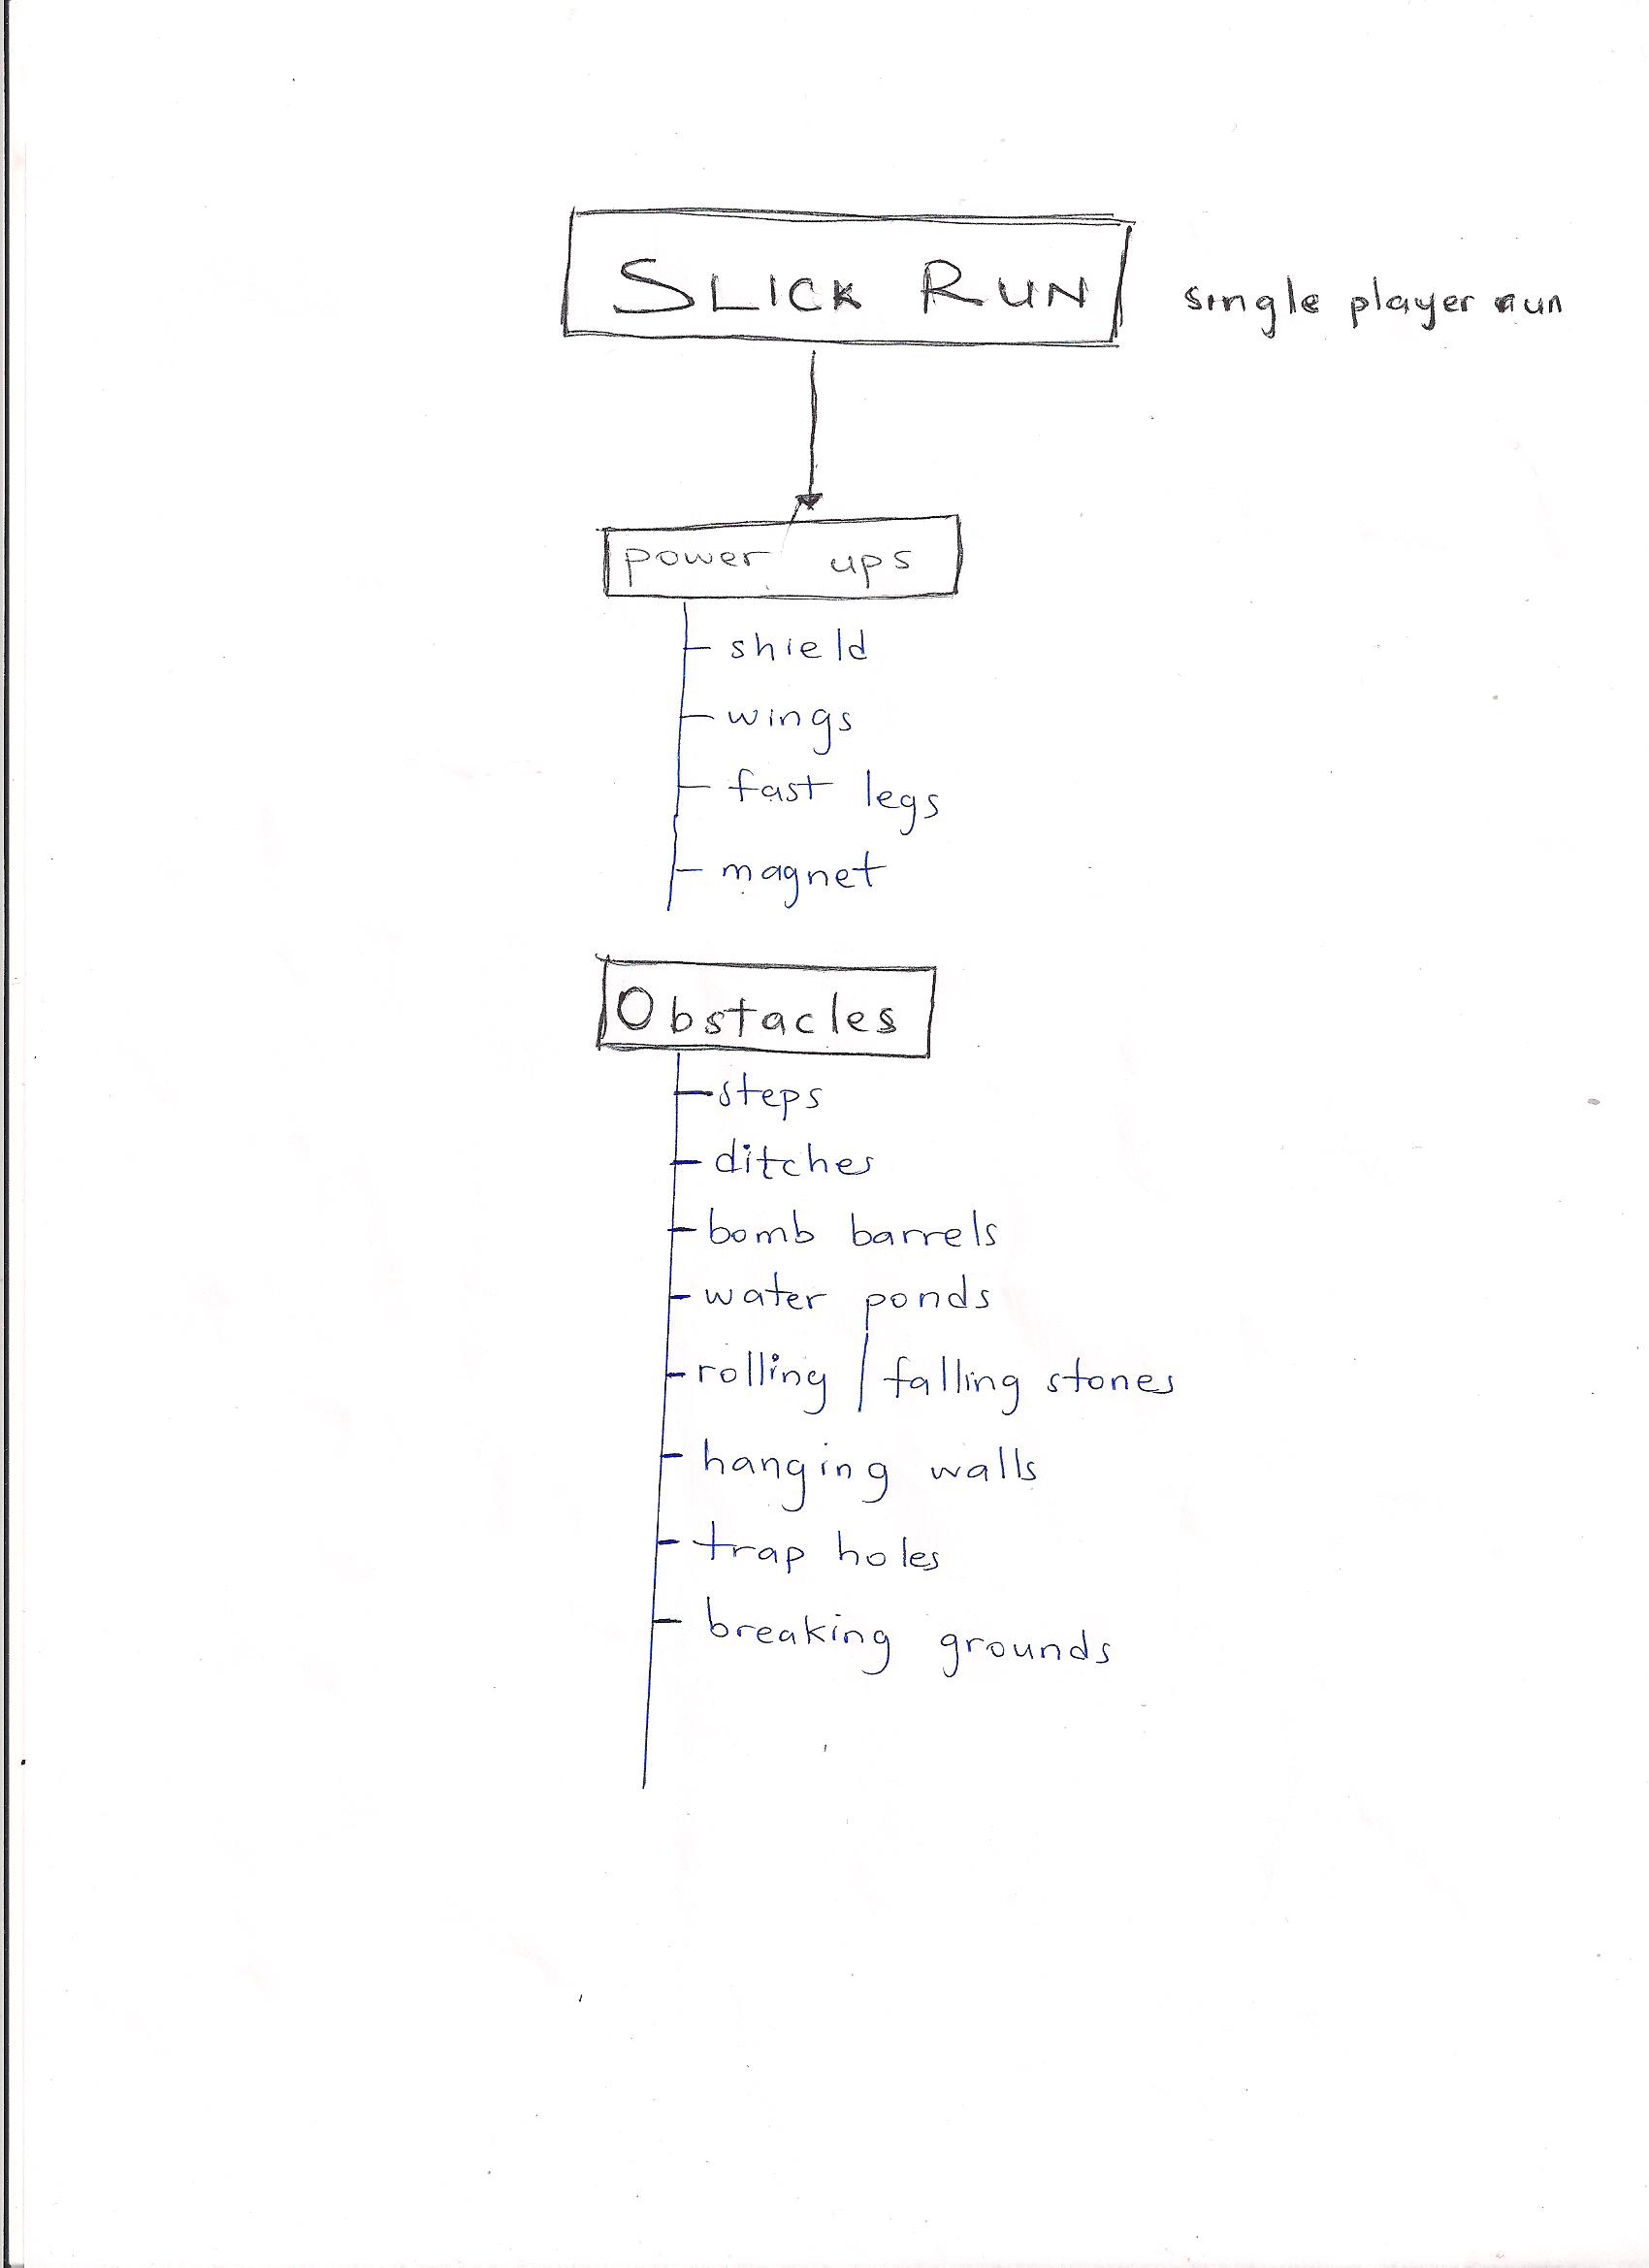 SLICK RUN single player run
power ups
shield
wings
fast legs
magnet
Obstacles
steps
ditches
bomb barrels
water ponds
rolling / falling stones
hanging walls
trap holes
breaking grounds